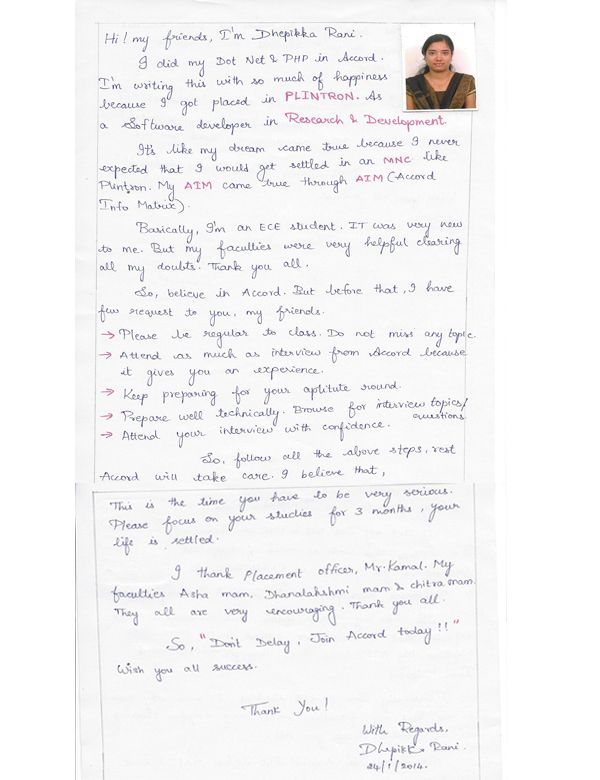 Hi! my friends, I'm Dhepikka Rani.
I did my Dot Net & PHP in Accord.
I'm writing this with so much of happiness
because I got placed in PLINTRON. As
a Software developer in Research & Development.
It's like my dream came true because I never
expected that I would get settled in an MNC like
Plintron. My AIM came true through AIM (Accord
Info Matrix).
Basically, I'm an ECE student. IT was very new
to me. But my faculties were very helpful clearing
all my doubts. Thank you all.
So, believe in Accord. But before that, I have
few request to you, my friends.
→ Please be regular to class. Do not miss any topic.
→ Attend as much as interview from Accord because
it gives you an experience.
→ Keep preparing for your aptitute round.
→ Prepare well technically. Browse for interview topics/
questions
→ Attend your interview with confidence.
So, follow all the above steps, rest
Accord will take care. I believe that,
This is the time you have to be very serious.
Please focus on your studies for 3 months, your
life is settled.
I thank Placement officer, Mr. Kamal. My
faculties Asha mam, Dhanalakshmi mam & chitra mam.
They all are very encouraging. Thank you all.
So, "Don't Delay, Join Accord today!!"
Wish you all success.
Thank You!
With Regards,
Dhepikka Rani.
24/1/2014.